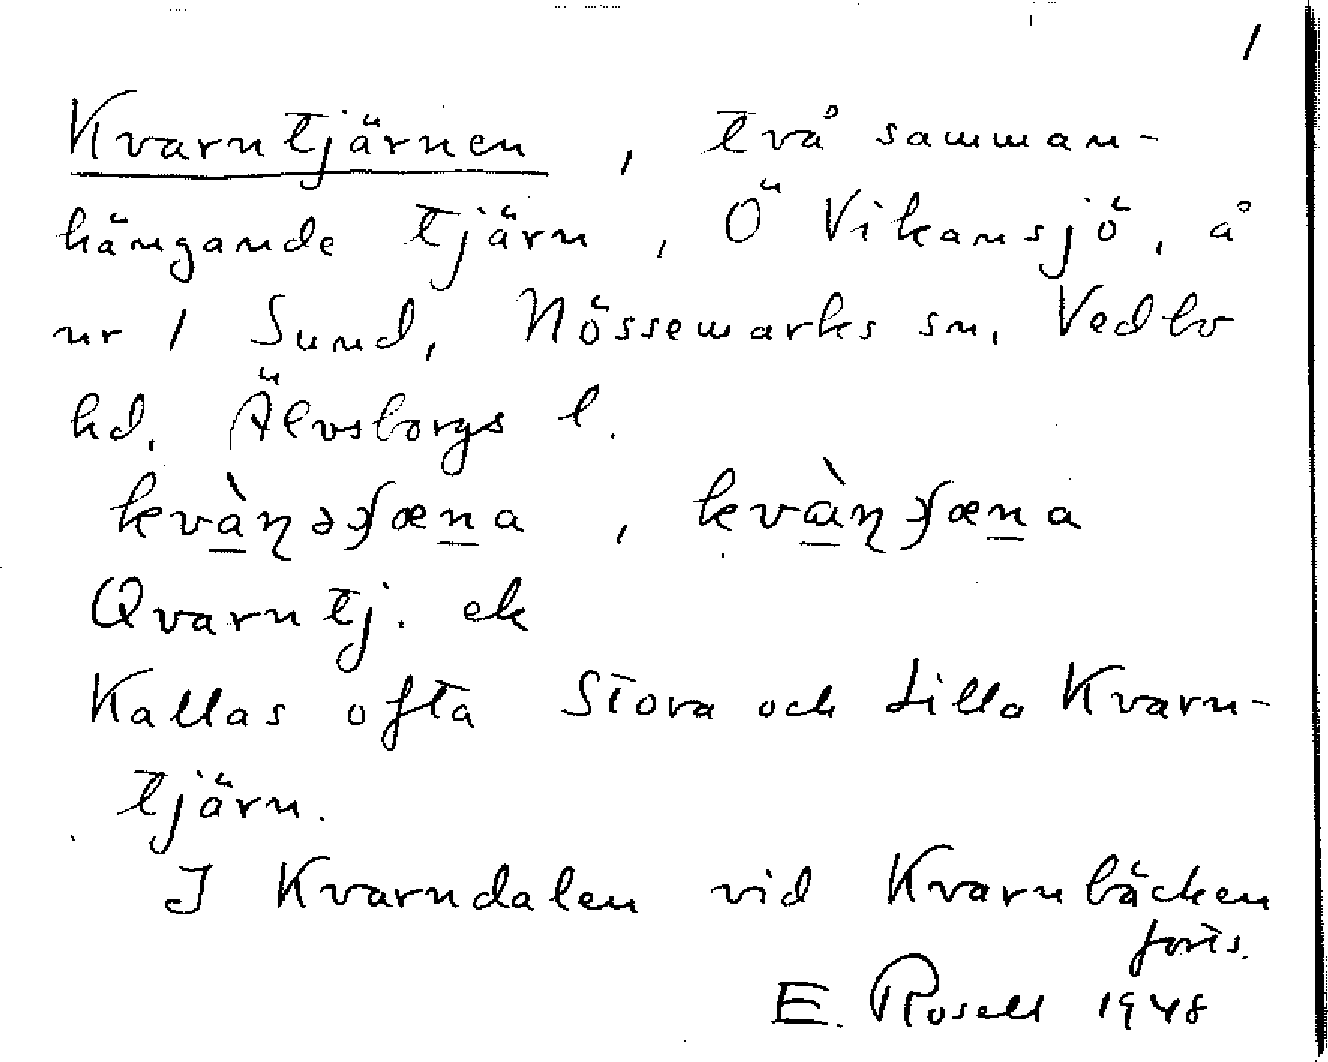 1
Kvarntjärnen, två samman-
hängande tjärn, Ö Vikansjö, å
nr 1 Sund, Nössemarks sn, Vedbo
hd. Älvsborgs l.
Qvarntj. ek
Kallas ofta Stora och Lilla Kvarn-
tjärn.
I Kvarndalen vid Kvarnbäcken
forts.
E. Rosell 1948